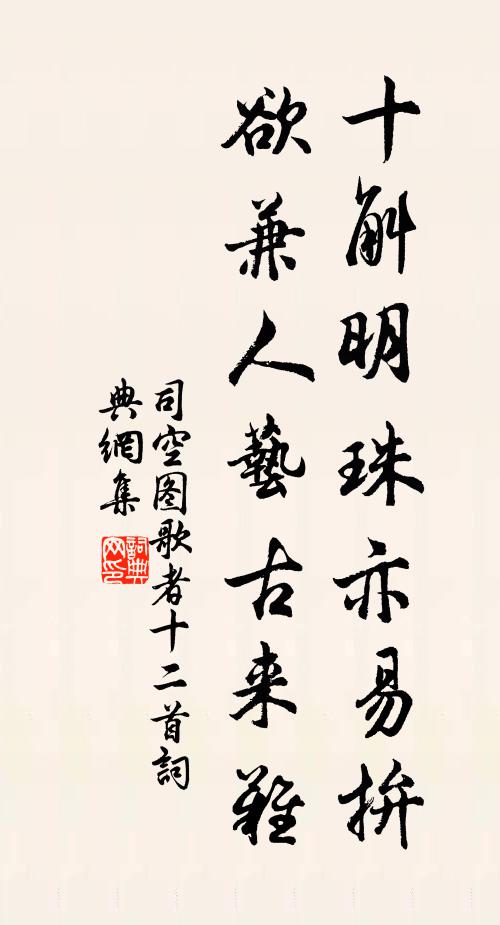 十斛明珠亦易拚
欲兼人藝古来難
司空图歌者十二首詞
典網集
詞典网印